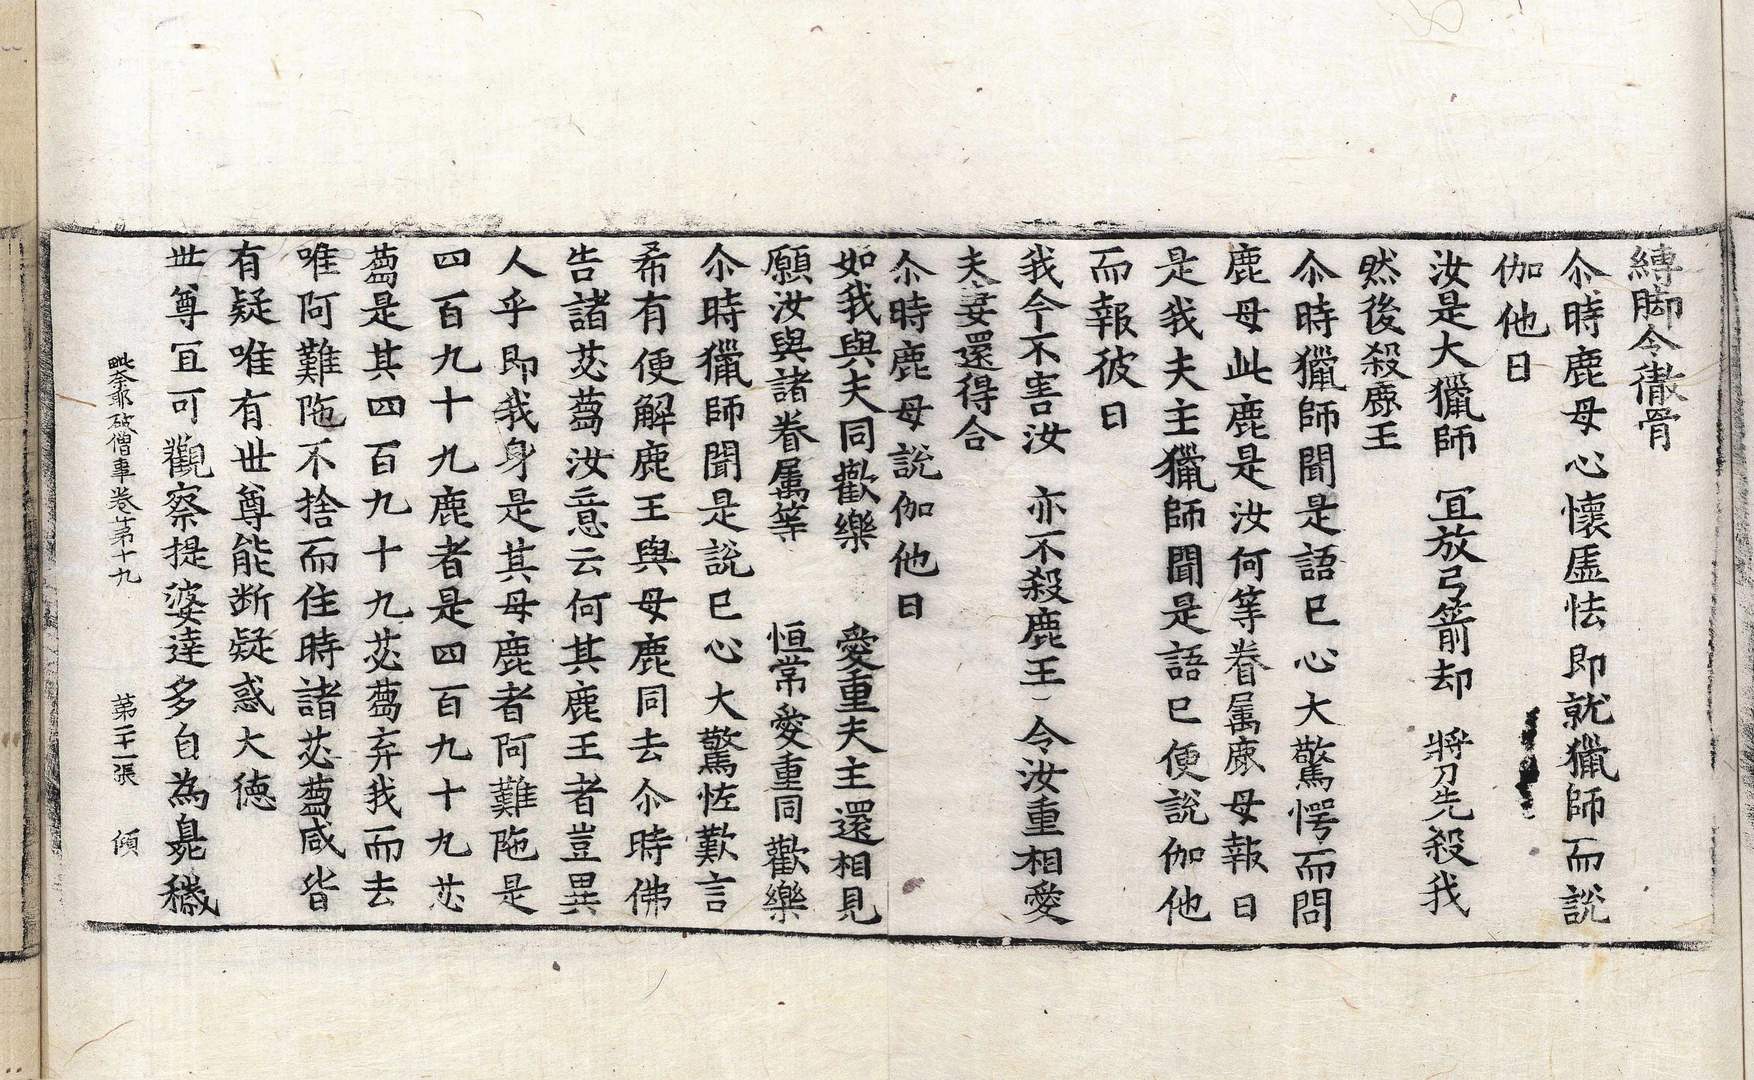 縛脚令徹骨
尒時鹿母心懷虛怯即就獵師而說
伽他曰
汝是大獵師 冝放弓箭却 將刀先殺我
然後殺鹿王
尒時獵師聞是語已心大驚愕而問
鹿母此鹿是汝何等眷属鹿母報曰
是我夫主獵師聞是語已便說伽他
而報彼曰
我今不害汝 亦不殺鹿王 令汝重相愛
夫妻還得合
尒時鹿母說伽他曰
如我與夫同歡樂 愛重夫主還相見
願汝與諸眷属等 恒常愛重同歡樂
尒時獵師聞是說已心大驚恠歎言
希有便解鹿王與母鹿同去尒時佛
告諸苾蒭汝意云何其鹿王者豈異
人乎即我身是其母鹿者阿難陁是
四百九十九鹿者是四百九十九苾
蒭是其四百九十九苾蒭弃我而去
唯阿難陁不捨而住時諸苾蒭咸皆
有疑唯有世尊能断疑惑大德
世尊冝可觀察提婆達多自為臰穢
毗奈耶破僧事卷第十九 第二十一張 傾